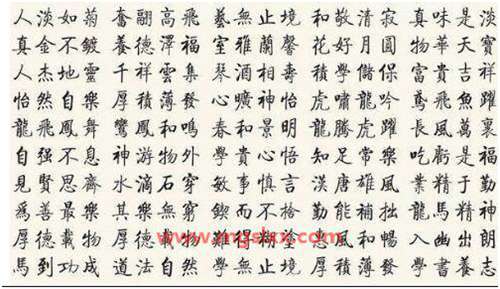 人淡如菊 奮翮高飛 藝無止境 和敬清寂 真味是淡
真金不鍍 養德澤福 室雅蘭馨 花好月圓 物華天寶
人杰地靈 千祥雲集 琴酒相壽 積學儲保 富貴吉祥
怡然自樂 厚積薄發 心曠神怡 虎嘯龍吟 鳶飛魚躍
龍飛鳳舞 鸞鳳和鳴 春和景明 龍騰虎躍 長風萬裏
自强不息 神游物外 學貴心悟 知足常樂 吃虧是福
見賢思齊 水滴石穿 敏事慎言 漢唐雄風 業精于勤
爲善最樂 其樂無窮 鍥而不捨 勤能補拙 龍馬精神
厚德載物 風和暢 入幽出朗
馬到功成 道法自然 學無止境 厚積薄發 學書養志